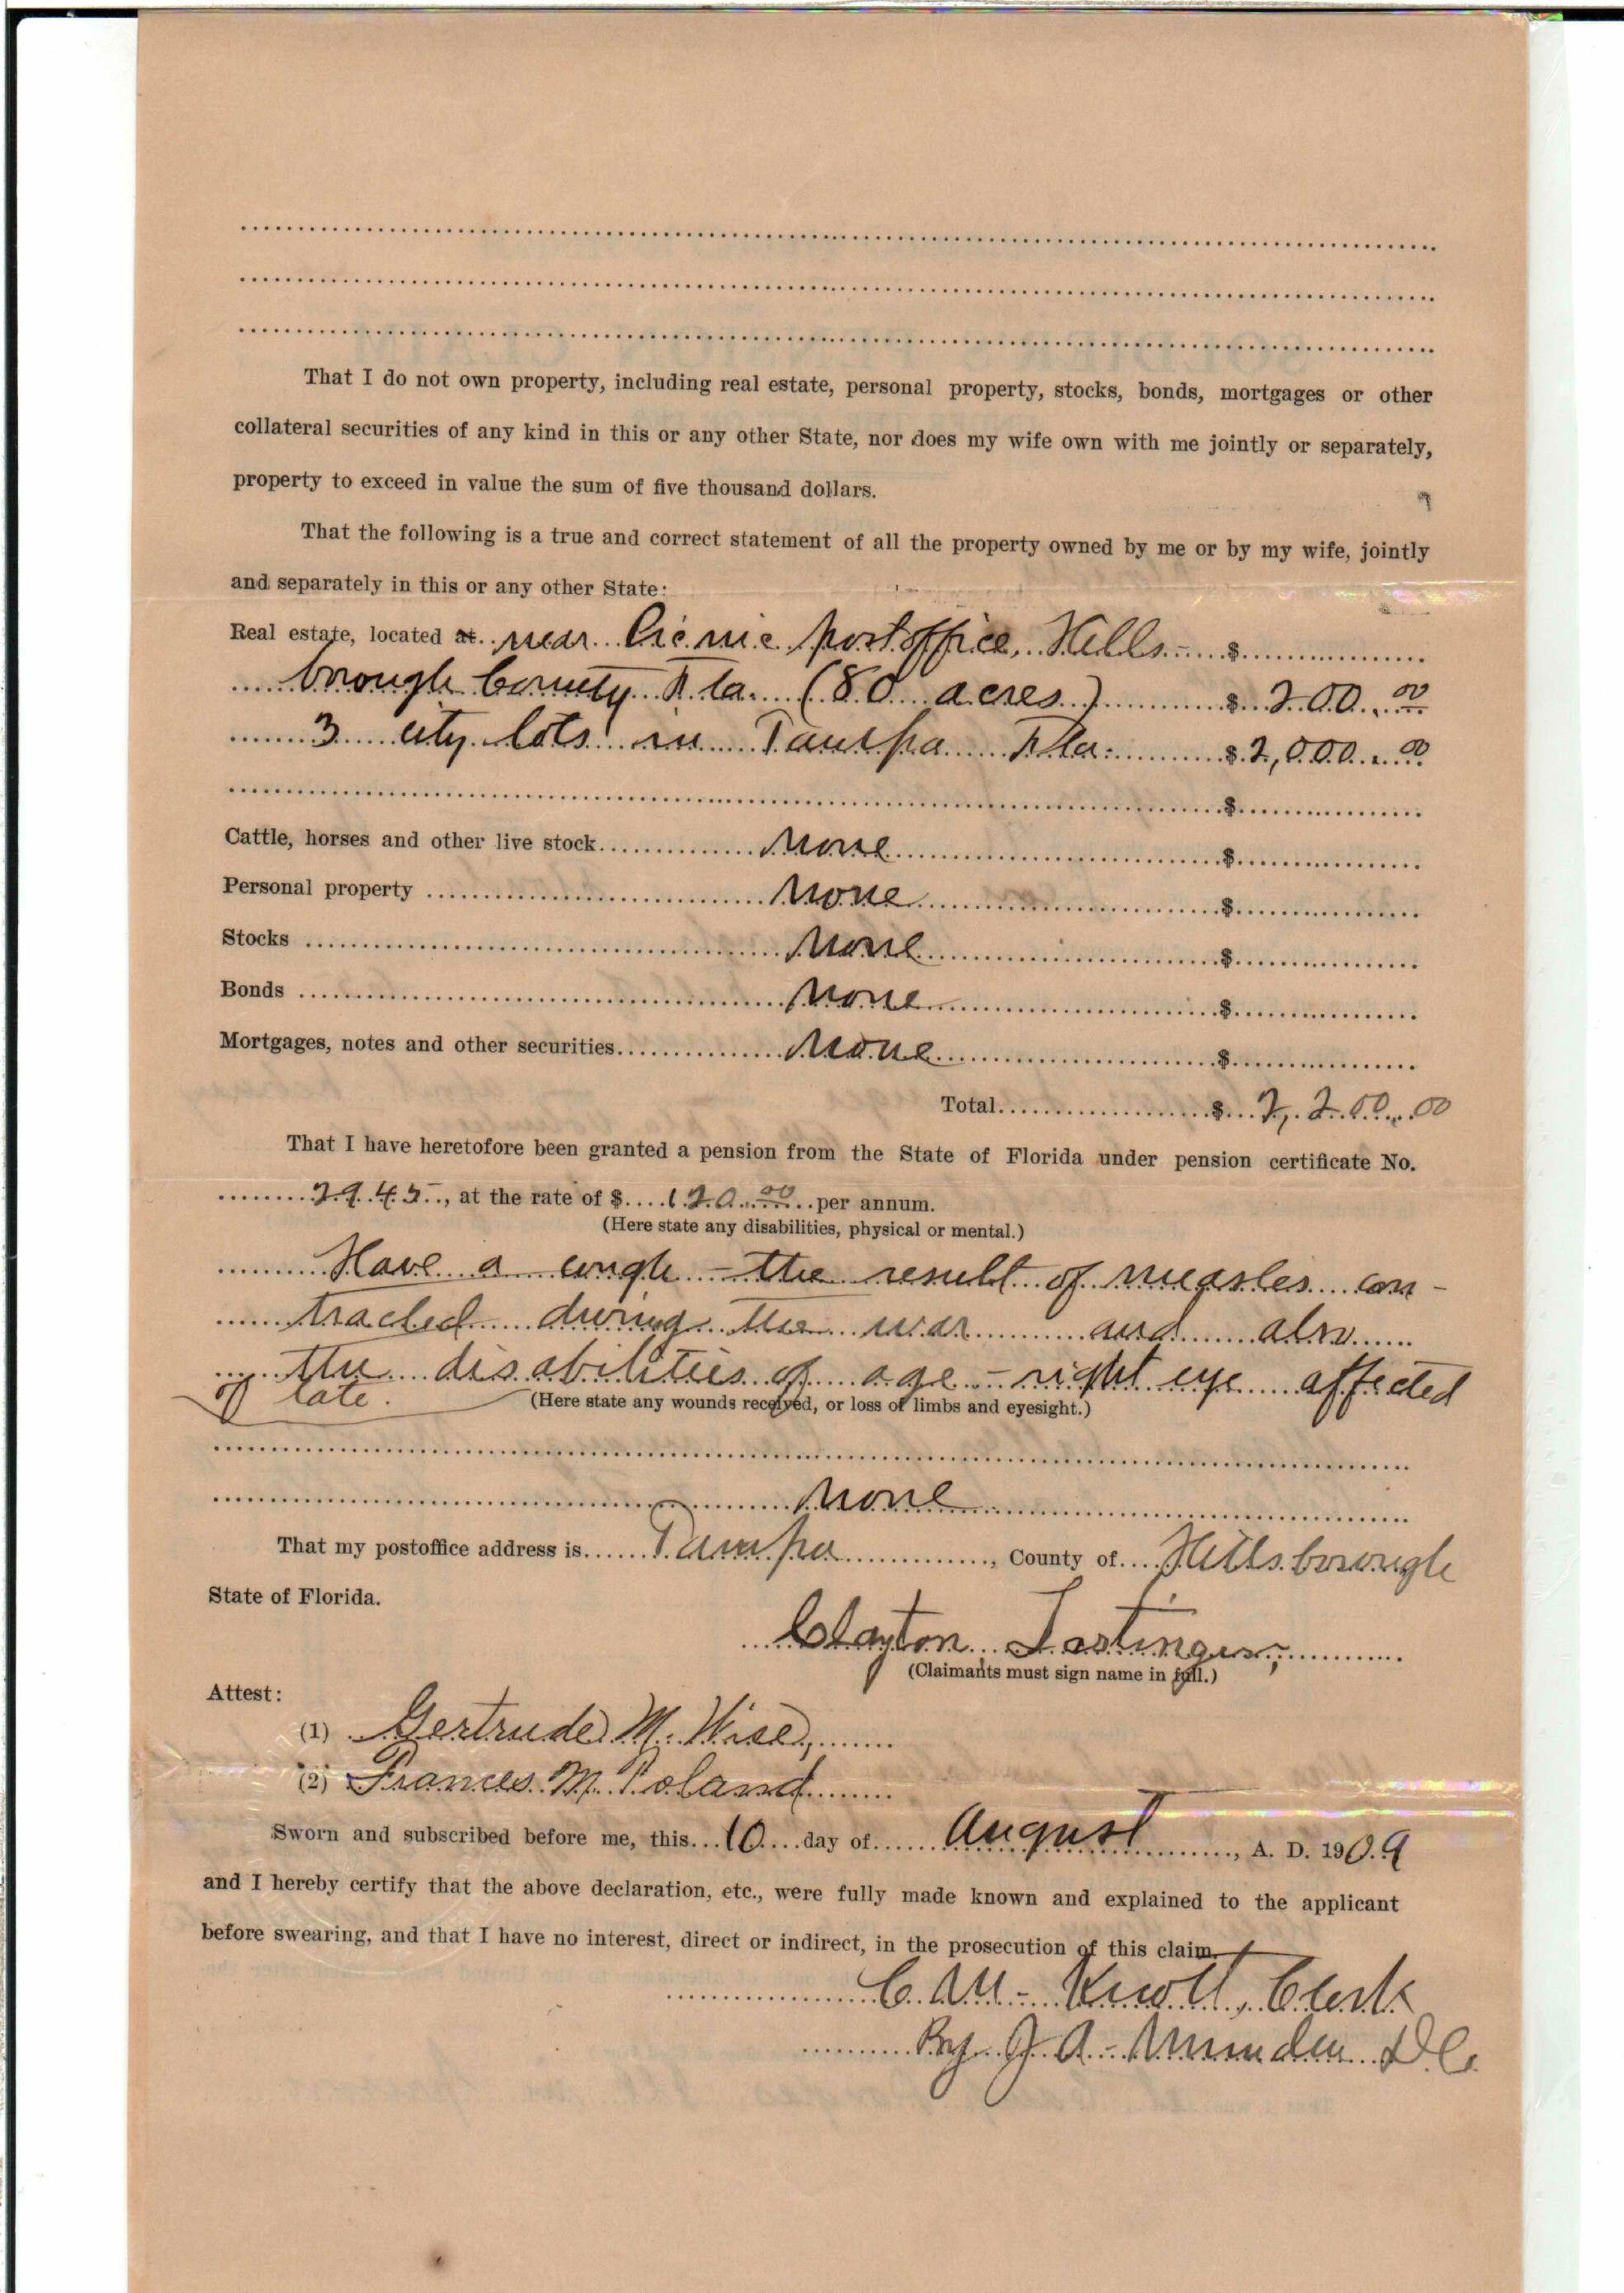 That I do not own property, including real estate, personal property, stocks, bonds, mortgages or other
collateral securities of any kind in this or any other State, nor does my wife own with me jointly or separately,
property to exceed in value the sum of five thousand dollars.
That the following is a true and correct statement of all the property owned by me or by my wife, jointly
and separately in this or any other State:
Real estate, located at near Picnic Postoffice, Hills- $
borough County Fla. (80 acres) $ 200.00
3 city lots in Tampa Fla. $ 2,000.00
$
Cattle, horses and other live stock None $
Personal property None $
Stocks None $
Bonds None $
Mortgages, notes and other securities None $
Total $ 2,200.00
That I have heretofore been granted a pension from the State of Florida under pension certificate No.
2945, at the rate of $ 120.00 per annum.
(Here state any disabilities, physical or mental.)
Have a cough - the result of measles con-
tracted during the war and also
the disabilities of age - right eye affected
of late. (Here state any wounds received, or loss of limbs and eyesight.)
None
That my postoffice address is Tampa, County of Hillsborough
State of Florida.
Clayton Lastinger,
(Claimants must sign name in full.)
Attest:
(1) Gertrude M. Wise,
(2) Frances M. Poland
Sworn and subscribed before me, this 10 day of August, A. D. 1909
and I hereby certify that the above declaration, etc., were fully made known and explained to the applicant
before swearing, and that I have no interest, direct or indirect, in the prosecution of this claim.
C. M. Knott, Clerk
By J A. Munden D.C.